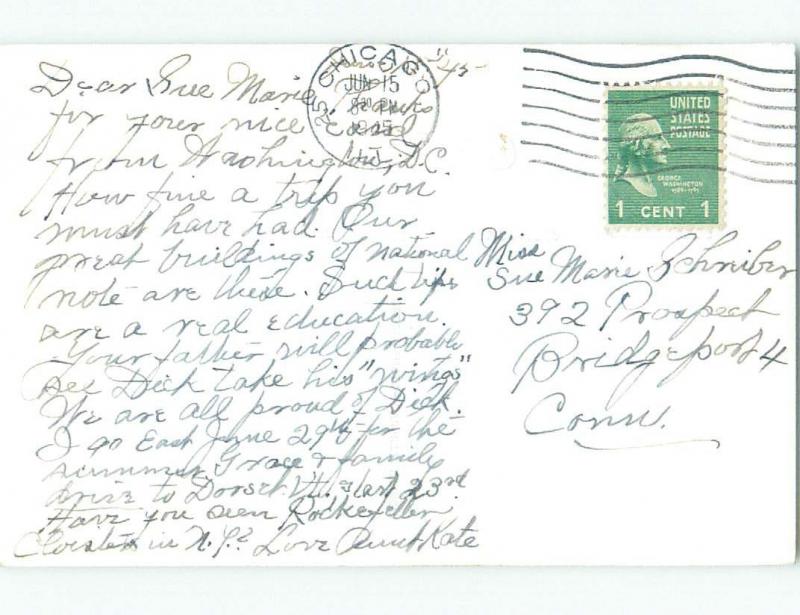 CHICAGO
JUN 15
8 30 PM
1945
ILL.
UNITED
STATES
POSTAGE
GEORGE
WASHINGTON
1 CENT 1
Dear Sue Marie, Thanks
for your nice card
from Washington, D.C.
How fine a trip you
must have had. Our
great buildings of national
note are there. Such trips
are a real education.
Your father will probably
see Dick take his "wings"
We are all proud of Dick.
I go East June 29th for the
summer. Grace & family
drive to Dorset Vt. start 23rd
Have you seen Rockefeller
Cloisters in N.Y? Love Aunt Kate
Miss
Sue Marie Schreiber
392 Prospect
Bridgeport 4
Conn.